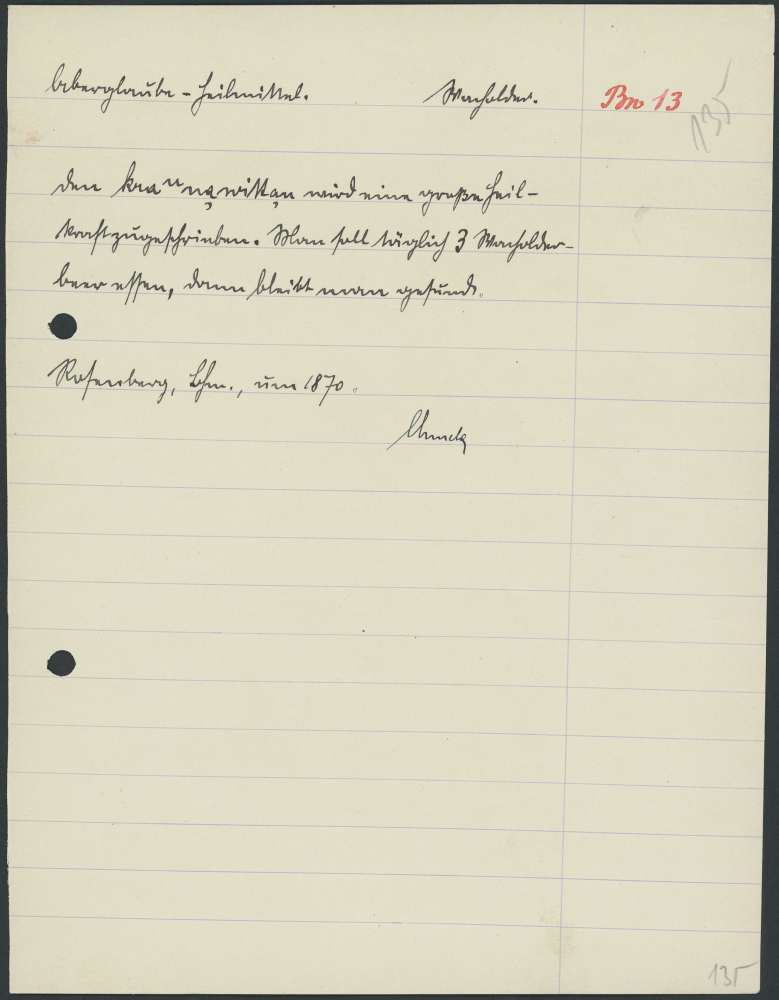 Aberglaube - Heilmittel. Wacholder. Bw 13 135
Den wird eine große Heil-
kraft zugeschrieben. Man soll täglich 3 Wacholder-
beer essen, dann bleibt man gesund.
Rosenberg, Bhm., um 1870.
135